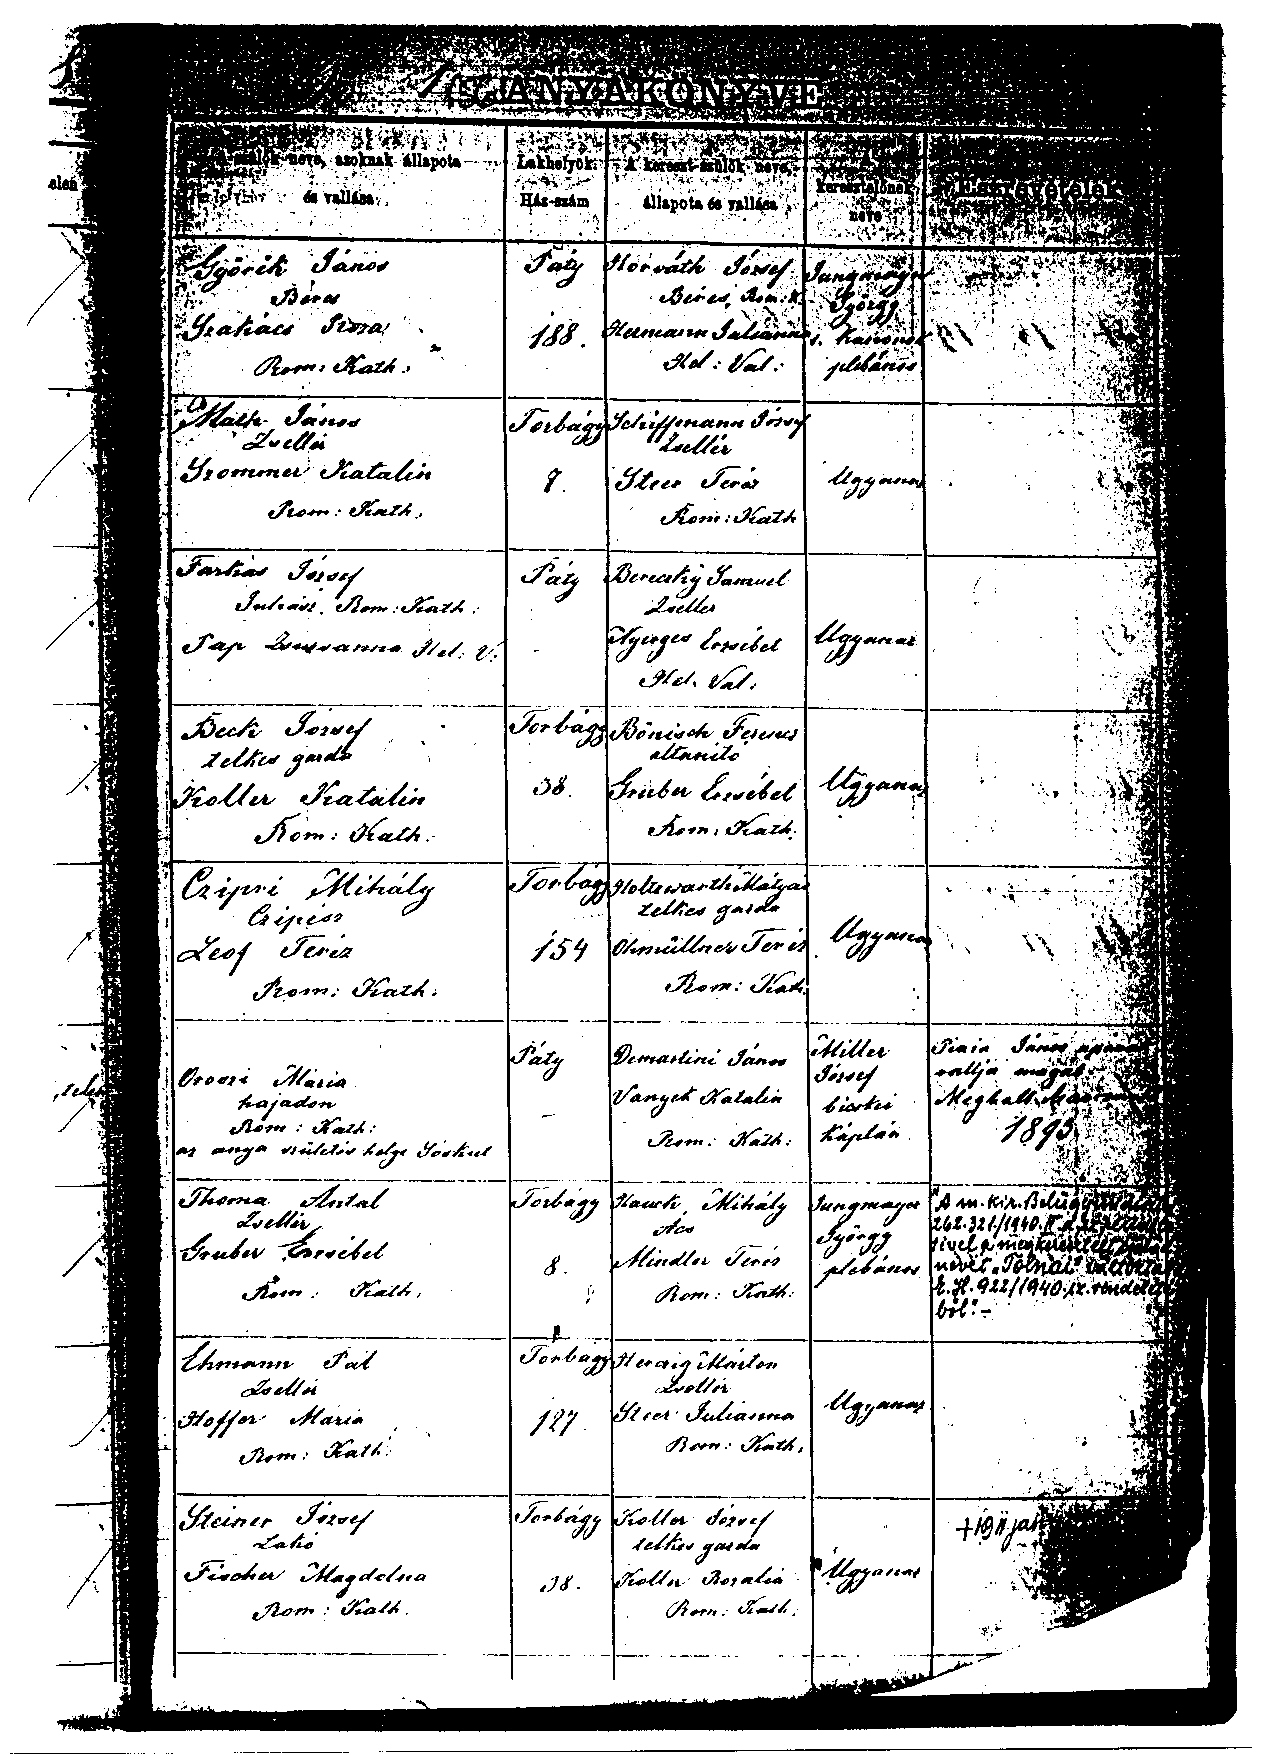 ANYAKÖNYVE
szülők neve, azoknak állapota
és vallása
Lakhelyök
Ház-szám
A kereszt-szülők neve,
állapota és vallása
keresztelőnek
neve
Észrevételek
Györik János
Béres
Szakács Roza
Rom: Kath.
Páty
188.
Horváth József
Béres, Rom. K.
Hermann Julianna
Hel: Val:
Jungmayer
György
plébános
Math János
Zsellér
Grommer Katalin
Rom: Kath.
Torbágy
Schiffmann József
Zsellér
Steer Teréz
Rom: Kath
Ugyanaz
Farkas József
Juhász, Rom: Kath:
Pap Zsuzsanna Hel: V:
Páty
Bereczky Samuel
Zsellér
Nyerges Erzsébet
Hel. Val.
Ugyanaz
Beck József
telkes gazda
Koller Katalin
Rom: Kath:
Torbágy
38.
Bönisch Ferencz
altanitó
Gruber Erzsébet
Rom: Kath:
Ugyanaz
Czipri Mihály
Czipész
Leof Teréz
Rom: Kath:
Torbágy
154
Holtzwarth Mátyás
telkes gazda
Ohmüllner Teréz
Rom: Kath.
Ugyanaz
Oroszi Mária
hajadon
Rom: Kath:
az anya születés helye Sóskut
Páty
Demartini János
Vanyek Katalin
Rom: Kath:
Miller
József
bicskei
káplán
János
vallja magát
Meghalt
1893
Thoma Antal
Zsellér
Gruber Erzsébet
Rom: Kath.
Torbágy
8.
Hauck Mihály
Ács
Mindler Teréz
Rom: Kath:
Jungmayer
György
plébános
"A m. kir. Belügyminiszter
262.321/1940.
nevét "Tolnai"
E.H. 922/1940. sz. rendelet
ből."-
Ehmann Pál
Zsellér
Hoffer Maria
Rom: Kath:
Torbágy
127
Herczig Márton
Zsellér
Steer Julianna
Rom: Kath.
Ugyanaz
Steiner József
Lakó
Fischer Magdolna
Rom: Kath.
Torbágy
38.
Koller József
telkes gazda
Koller Rozalia
Rom: Kath.
Ugyanaz